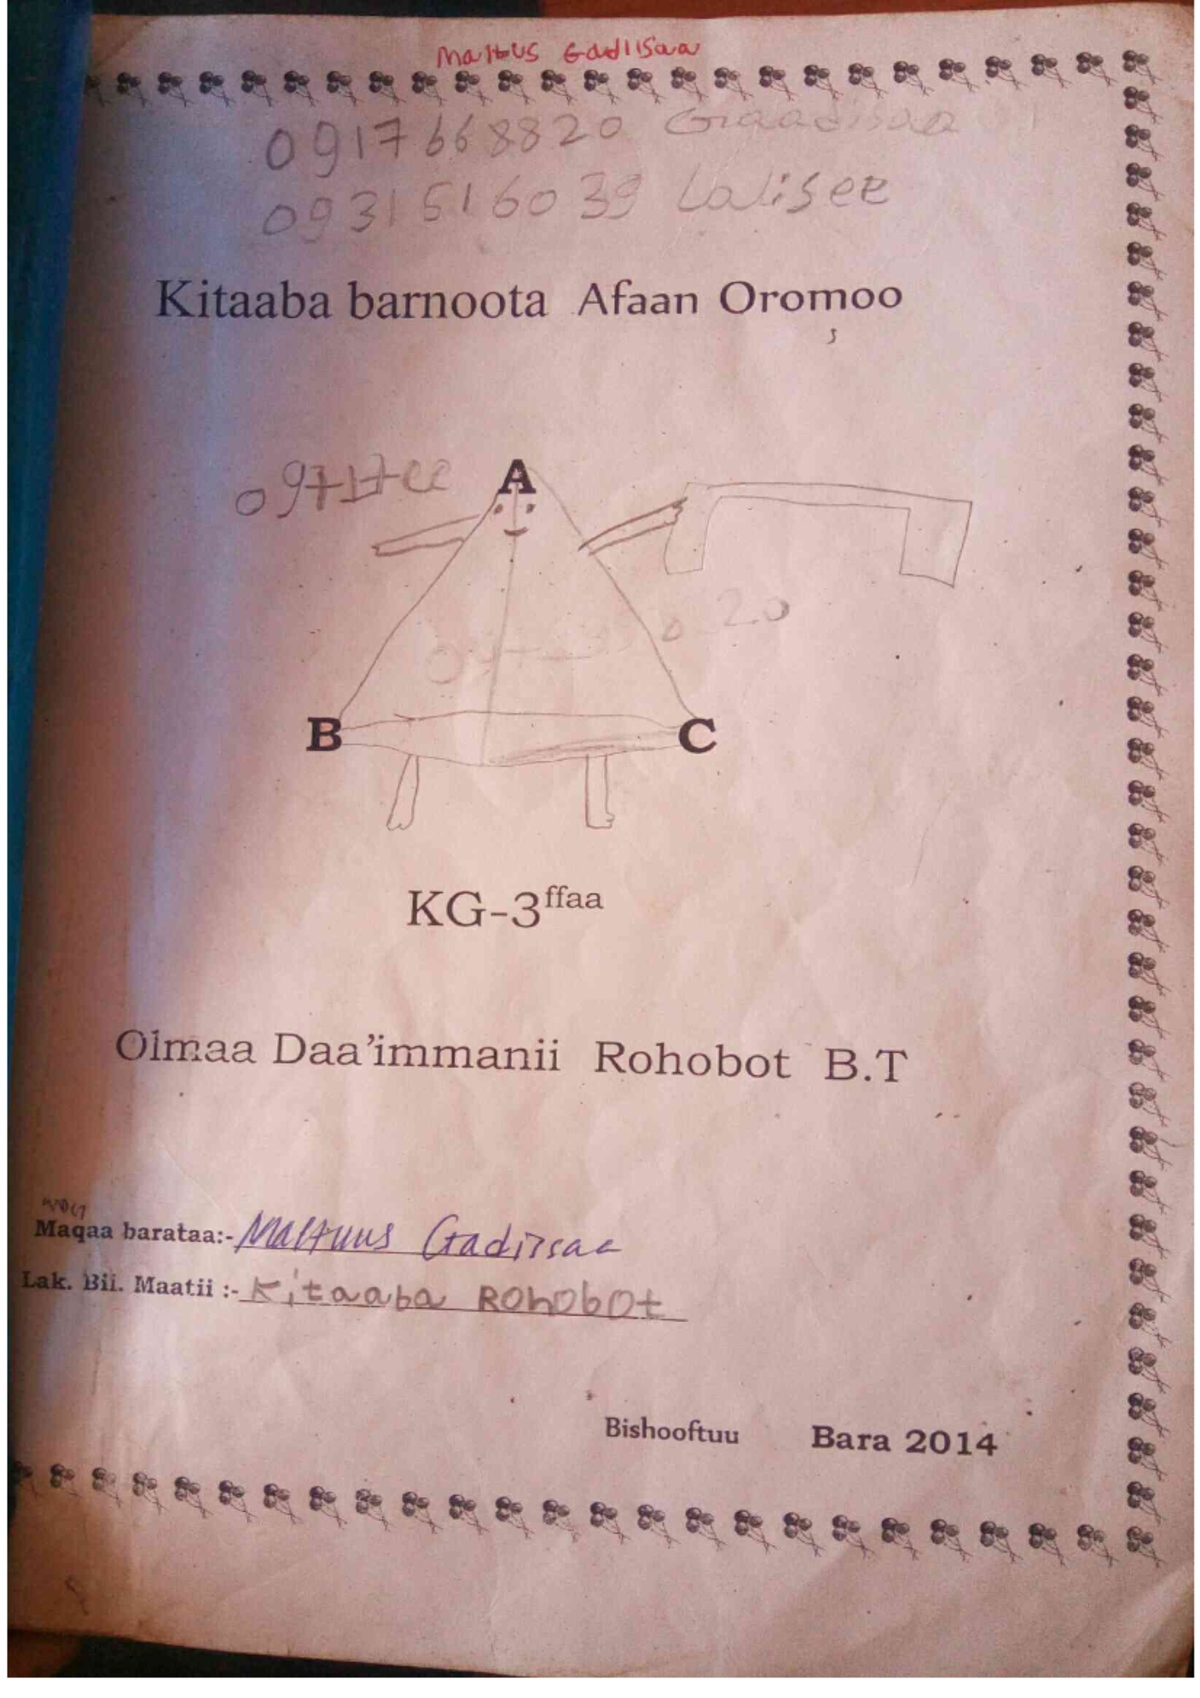 Maltus Gadiisaa
0917668820 Gaadisaa
0931516039 Lalisee
Kitaaba barnoota Afaan Oromoo
A
B C
KG-3ffaa
Olmaa Daa’immanii Rohobot B.T
Maqaa barataa:- Maltuus Gadiisaa
Lak. Bii. Maatii :- Kitaaba Rohobot
Bishooftuu Bara 2014